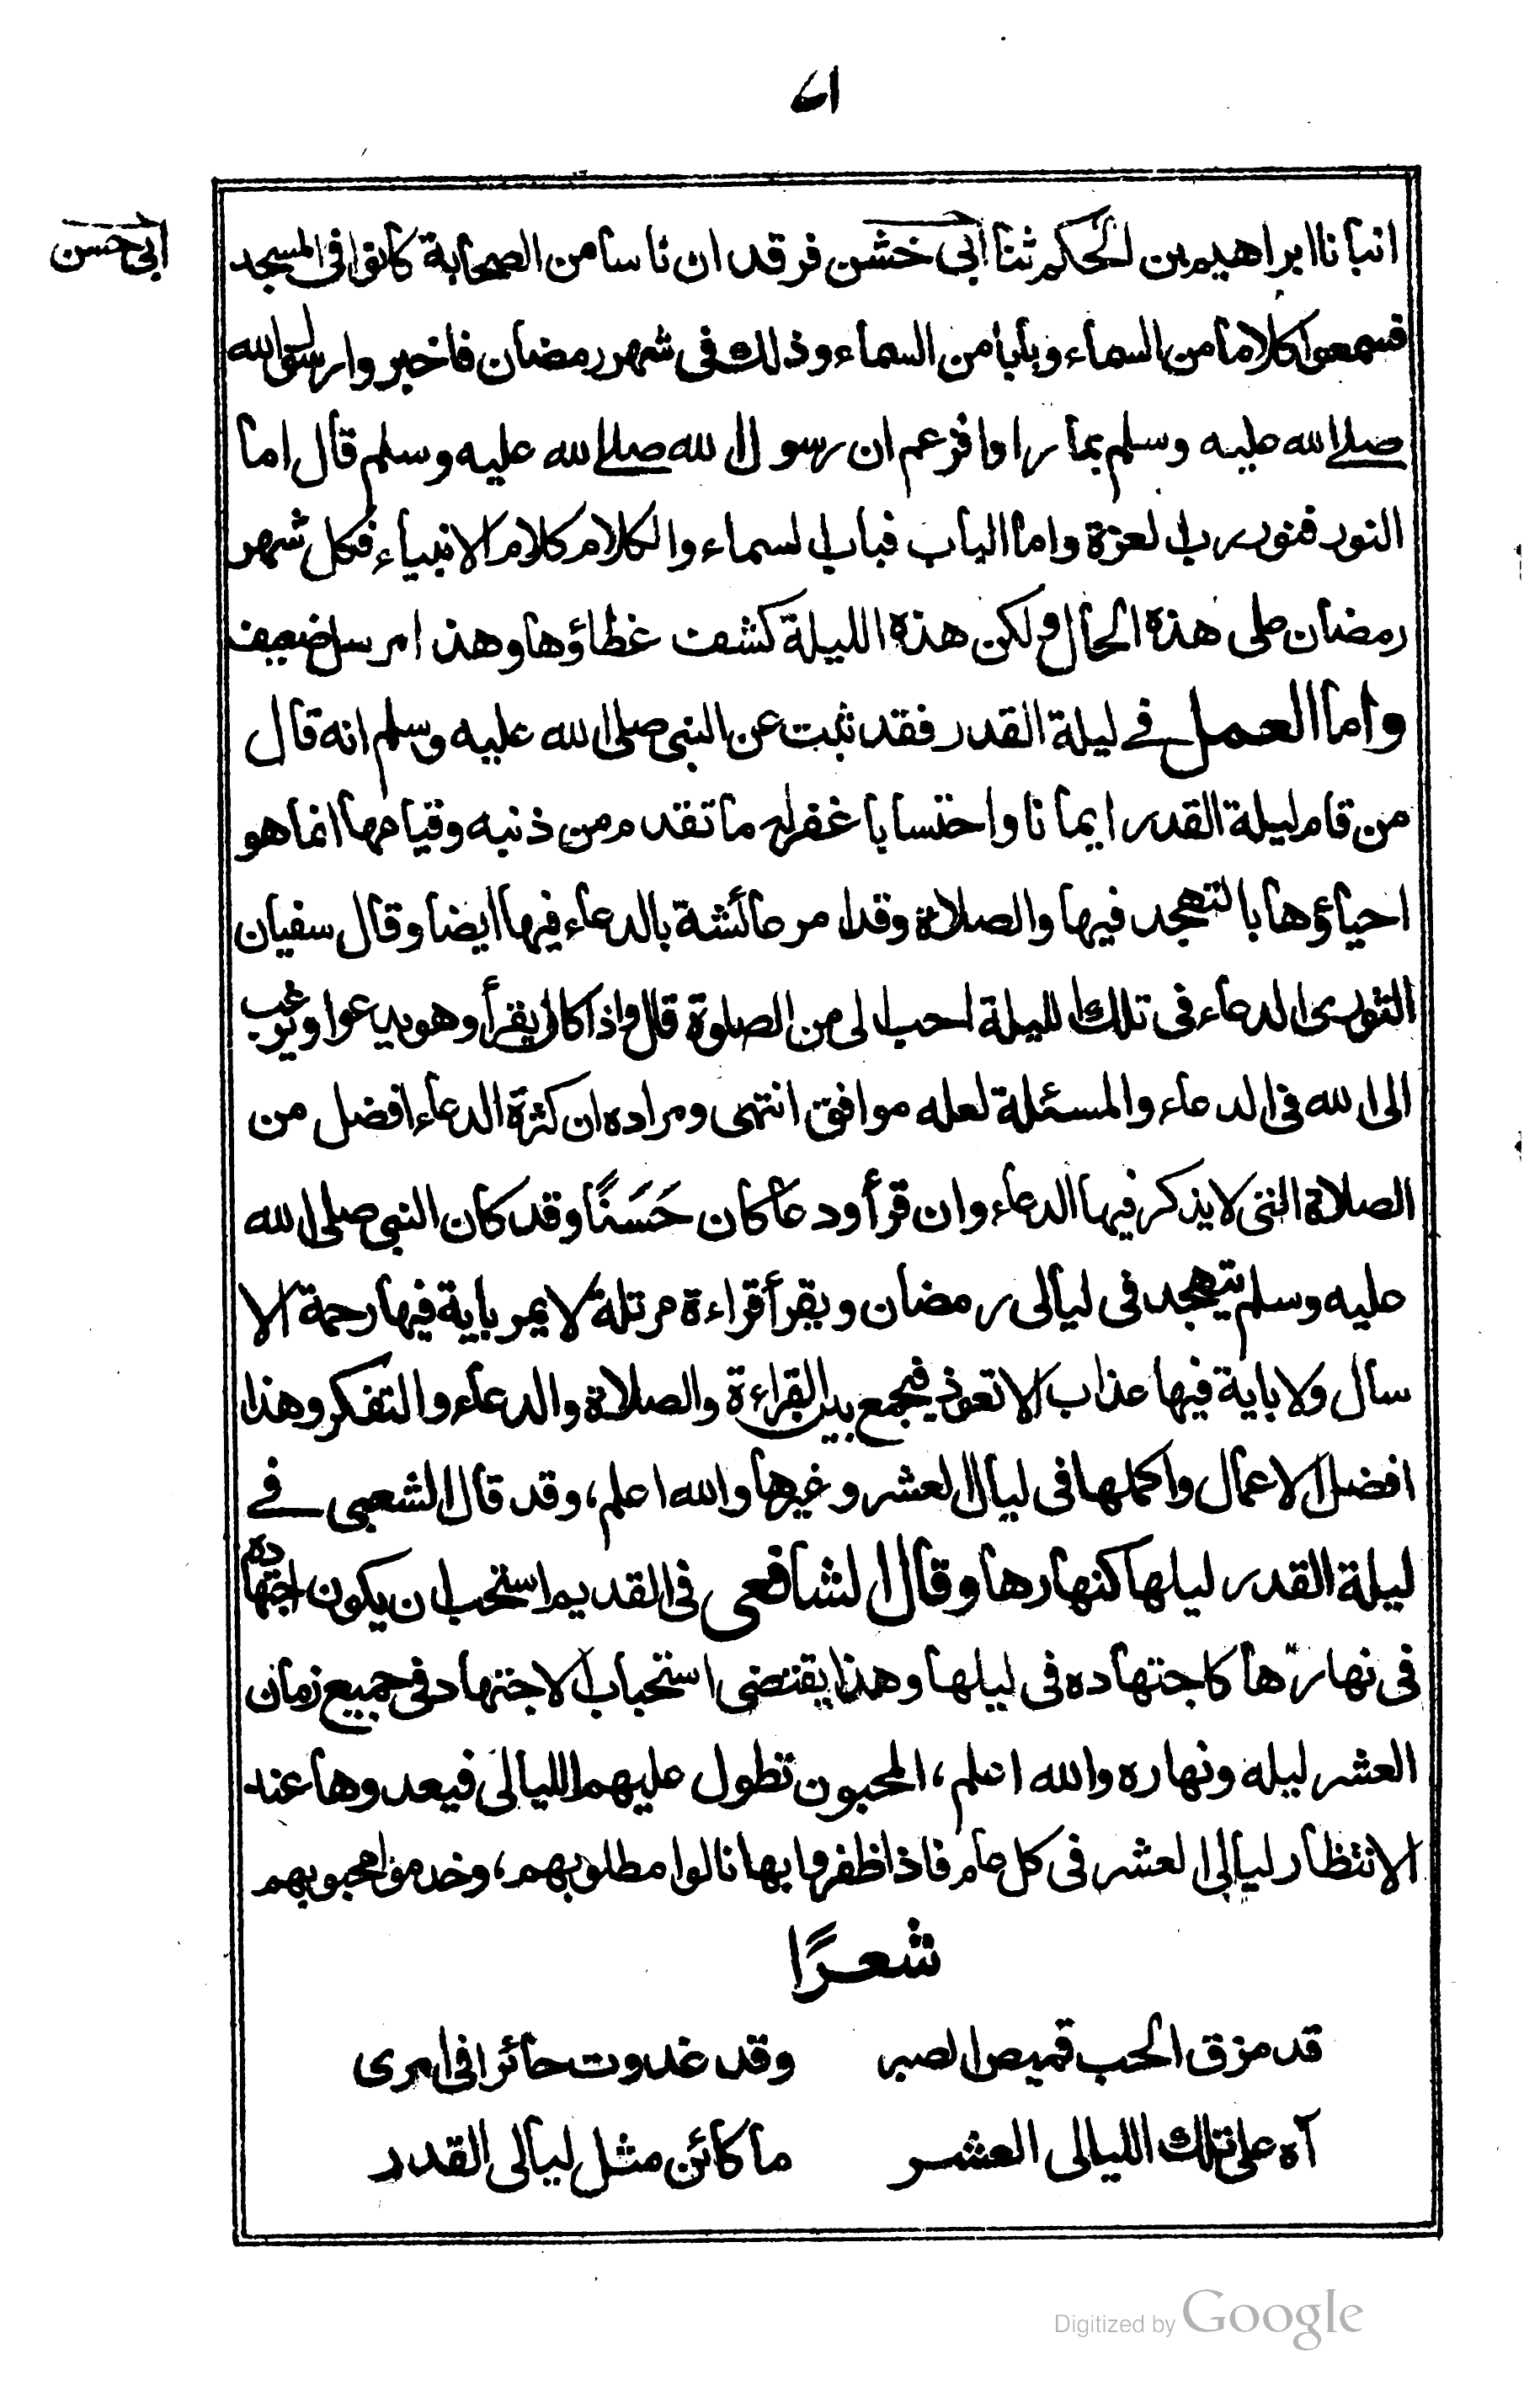 انبانا ابراهيم بن الحكم ثنا ابى خشن فرقد ان ناسا من الصحابة كانوا فى المسجد
ابى حسن
فسمعوا كلاما من السماء وبابا من السماء وذلك فى شهر رمضان فاخبروا رسول الله
صلى الله عليه وسلم بما راوا فزعم ان رسول الله صلى الله عليه وسلم قال اما
النور فنور رب العزة واما الباب فباب السماء والكلام كلام الانبياء فكل شهر
رمضان على هذه الحال ولكن هذه الليلة كشفت غطاؤها وهذا مرسل ضعيف
واما العمل في ليلة القدر فقد ثبت عن النبى صلى الله عليه وسلم انه قال
من قام ليلة القدر ايمانا واحتسابا غفر له ما تقدم من ذنبه وقيامها انما هو
احياؤها بالتهجد فيها والصلاة وقد امر عائشة بالدعاء فيها ايضا وقال سفيان
الثورى الدعاء فى تلك الليلة احب الى من الصلوة قال واذا كان يقرأ وهو يدعوا ويرغب
الى الله فى الدعاء والمسئلة لعله موافق انتهى ومراده ان كثرة الدعاء افضل من
الصلاة التى لا يذكر فيها الدعاء وان قرأ ودعا كان حَسَنًا وقد كان النبى صلى الله
عليه وسلم يتهجد فى ليالى رمضان ويقرأ قراءة مرتلة لا يمر باية فيها رحمة الا
سأل ولا باية فيها عذاب الا تعوذ فيجمع بين القراءة والصلاة والدعاء والتفكر وهذا
افضل الاعمال واكملها فى ليال العشر وغيرها والله اعلم، وقد قال الشعبى في
ليلة القدر ليلها كنهارها وقال الشافعى فى القديم استحب ان يكون اجتهاده
فى نهارها كاجتهاده فى ليلها وهذا يقتضى استحباب الاجتهاد فى جميع زمان
العشر ليله ونهاره والله اعلم، المحبون تطول عليهم الليالى فيعدوها عند
الانتظار ليالى العشر فى كل عام فاذا ظفروا بها نالوا مطلوبهم، وخدموا محبوبهم
شعرًا
قد مزق الحب قميص الصبر وقد غدوت حائرا فى امرى
آه على تلك الليالى العشر ما كائن مثل ليالى القدر
Digitized by Google